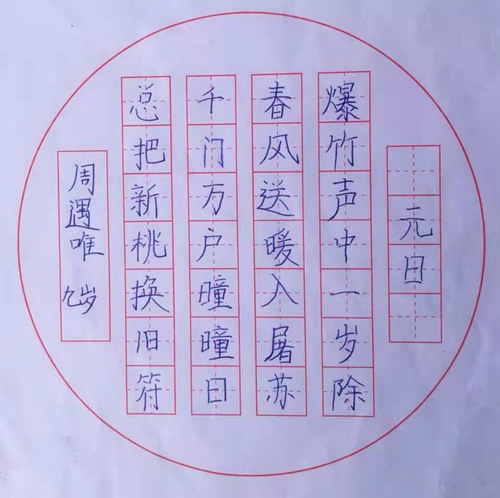 元日
爆竹声中一岁除
春风送暖入屠苏
千门万户曈曈日
总把新桃换旧符
周遇唯 九岁